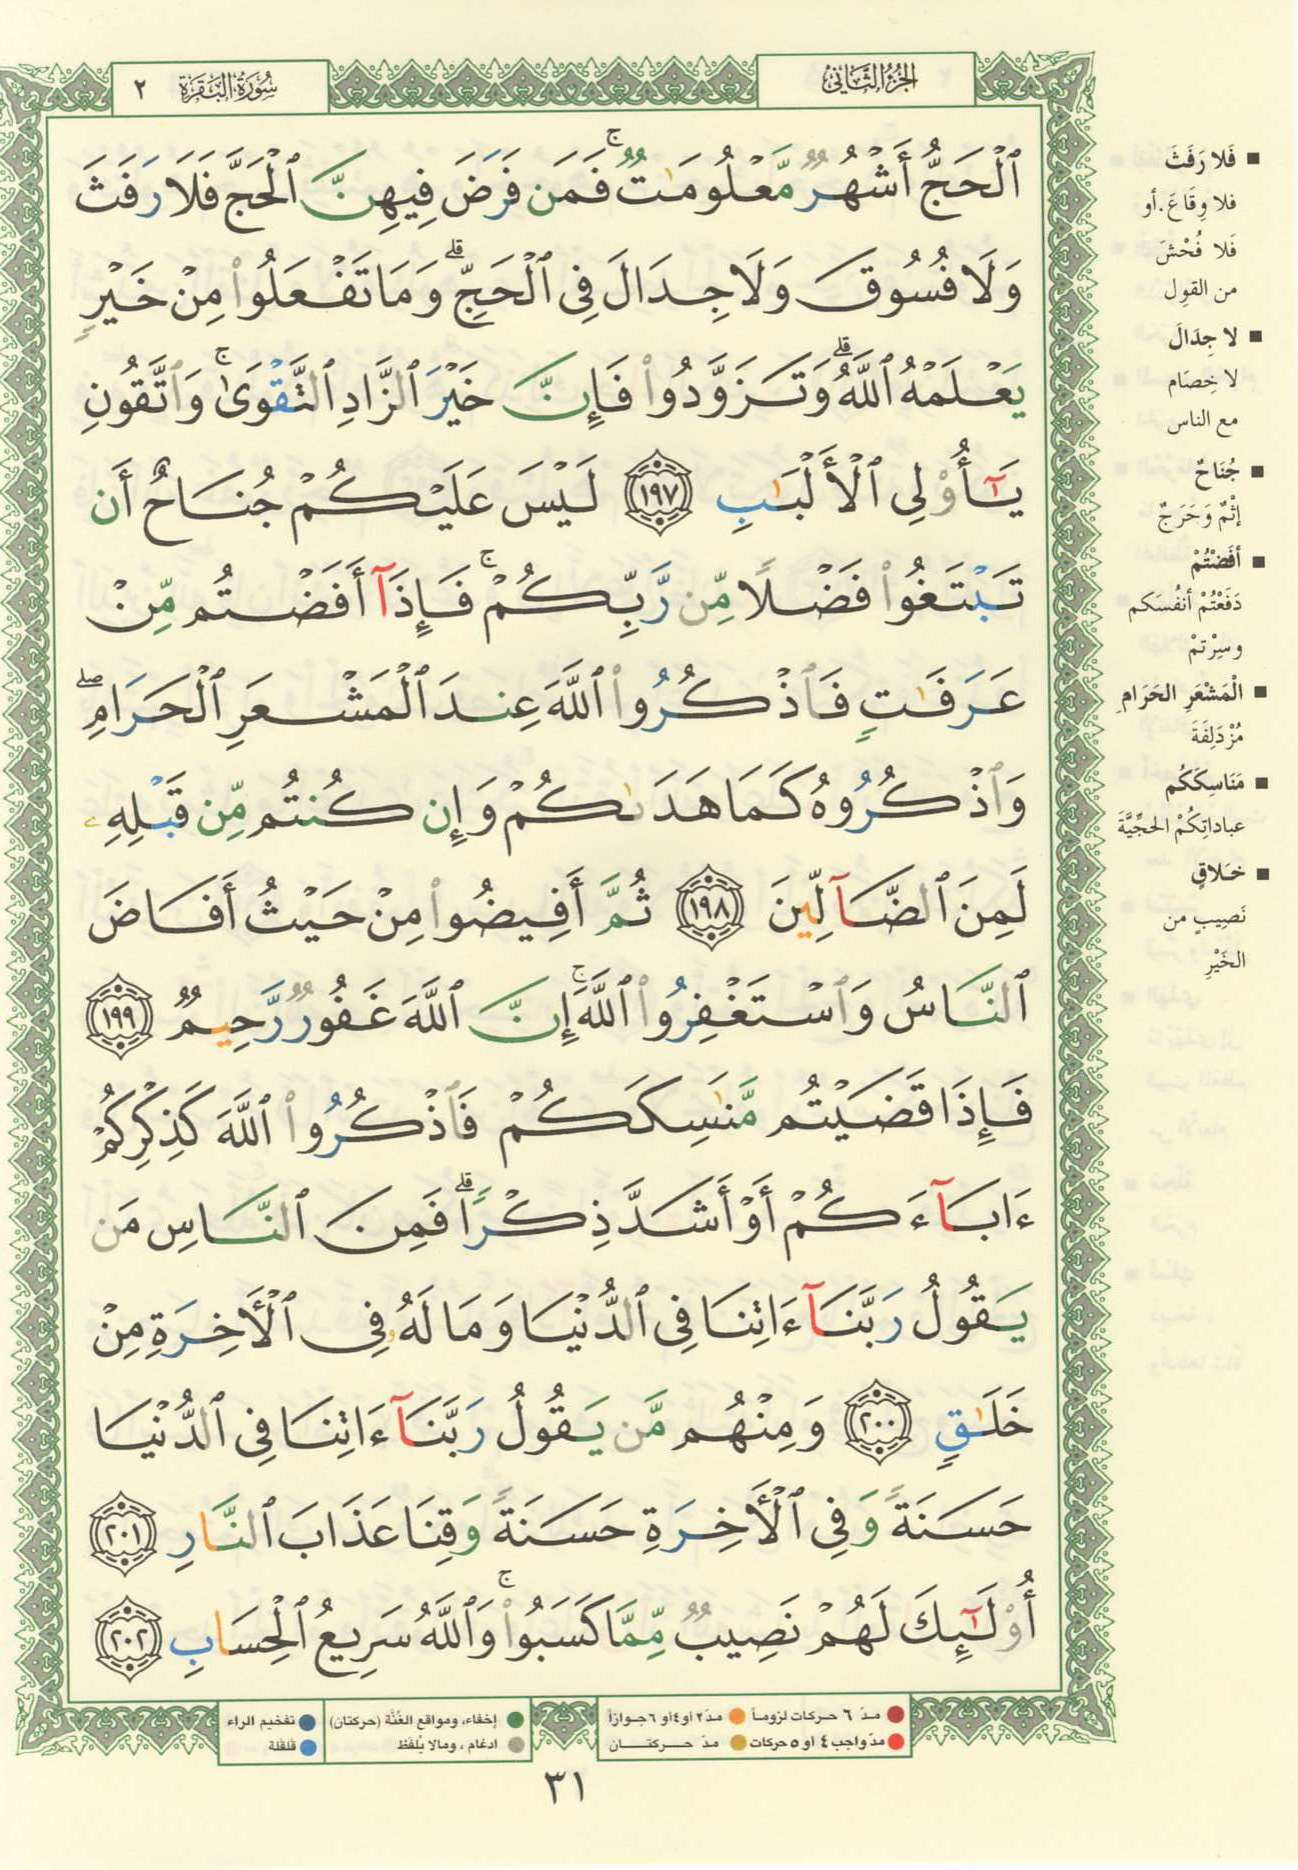 الجزء الثاني
سورة البقرة ٢
ٱلْحَجُّ أَشْهُرٌ مَّعْلُومَـٰتٌ ۚ فَمَن فَرَضَ فِيهِنَّ ٱلْحَجَّ فَلَا رَفَثَ
وَلَا فُسُوقَ وَلَا جِدَالَ فِى ٱلْحَجِّ ۗ وَمَا تَفْعَلُوا۟ مِنْ خَيْرٍ
يَعْلَمْهُ ٱللَّهُ ۗ وَتَزَوَّدُوا۟ فَإِنَّ خَيْرَ ٱلزَّادِ ٱلتَّقْوَىٰ ۚ وَٱتَّقُونِ
يَـٰٓأُو۟لِى ٱلْأَلْبَـٰبِ ١٩٧ لَيْسَ عَلَيْكُمْ جُنَاحٌ أَن
تَبْتَغُوا۟ فَضْلًا مِّن رَّبِّكُمْ ۚ فَإِذَآ أَفَضْتُم مِّنْ
عَرَفَـٰتٍ فَٱذْكُرُوا۟ ٱللَّهَ عِندَ ٱلْمَشْعَرِ ٱلْحَرَامِ ۖ
وَٱذْكُرُوهُ كَمَا هَدَىٰكُمْ وَإِن كُنتُم مِّن قَبْلِهِۦ
لَمِنَ ٱلضَّآلِّينَ ١٩٨ ثُمَّ أَفِيضُوا۟ مِنْ حَيْثُ أَفَاضَ
ٱلنَّاسُ وَٱسْتَغْفِرُوا۟ ٱللَّهَ ۚ إِنَّ ٱللَّهَ غَفُورٌ رَّحِيمٌ ١٩٩
فَإِذَا قَضَيْتُم مَّنَـٰسِكَكُمْ فَٱذْكُرُوا۟ ٱللَّهَ كَذِكْرِكُمْ
ءَابَآءَكُمْ أَوْ أَشَدَّ ذِكْرًا ۗ فَمِنَ ٱلنَّاسِ مَن
يَقُولُ رَبَّنَآ ءَاتِنَا فِى ٱلدُّنْيَا وَمَا لَهُۥ فِى ٱلْـَٔاخِرَةِ مِنْ
خَلَـٰقٍ ٢٠٠ وَمِنْهُم مَّن يَقُولُ رَبَّنَآ ءَاتِنَا فِى ٱلدُّنْيَا
حَسَنَةً وَفِى ٱلْـَٔاخِرَةِ حَسَنَةً وَقِنَا عَذَابَ ٱلنَّارِ ٢٠١
أُو۟لَـٰٓئِكَ لَهُمْ نَصِيبٌ مِّمَّا كَسَبُوا۟ ۚ وَٱللَّهُ سَرِيعُ ٱلْحِسَابِ ٢٠٢
فَلا رَفَثَ
فلا وِقَاعَ. أو
فَلا فُحْشَ
من القولِ
لا جِدَالَ
لا خِصَام
مع الناس
جُنَاحٌ
إثْمٌ وَحَرَجٌ
أفَضْتُمْ
دَفَعْتُمْ أنفُسَكم
وسِرْتمْ
الْمَشْعَرِ الحَرَامِ
مُزْدَلِفَةَ
مَنَاسِكَكُم
عباداتِكُمْ الحجِّيَّةَ
خَلاقٍ
نَصِيبٍ من
الخَيْرِ
مدّ ٦ حركات لزوماً
مدّ ٢ أو ٤ أو ٦ جوازاً
مدّ واجب ٤ أو ٥ حركات
مدّ حركتان
إخفاء، ومواقع الغُنَّة (حركتان)
تفخيم الراء
ادغام، ومالا يُلفَظ
قلقلة
٣١